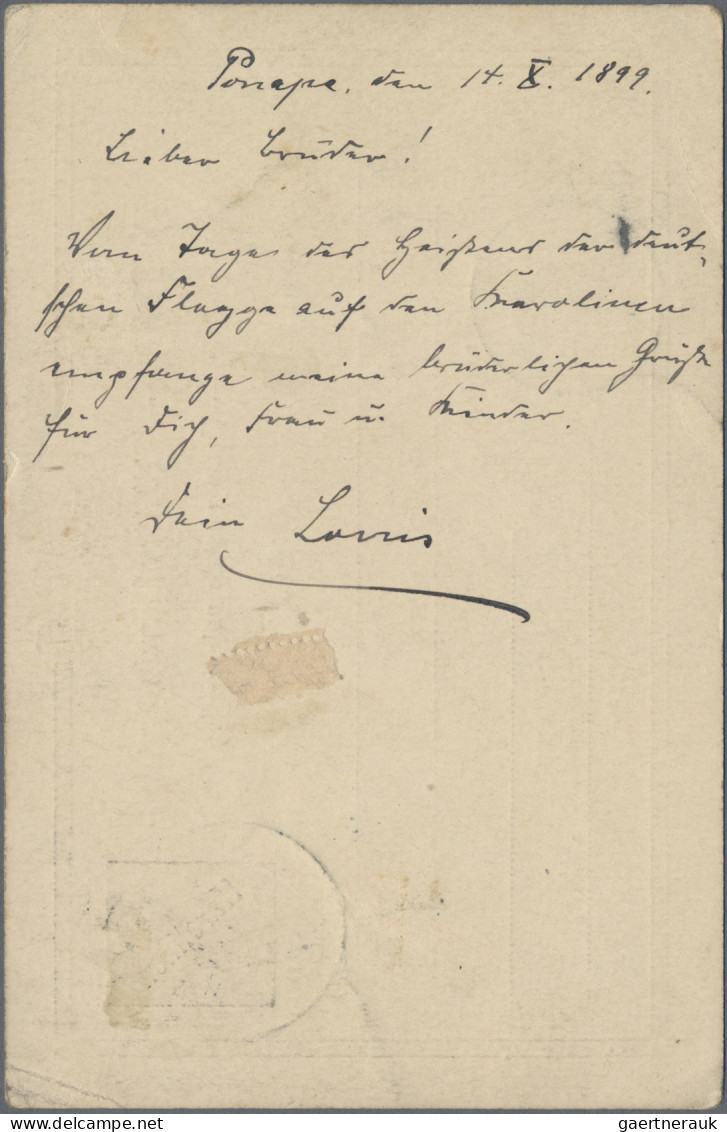 Ponape, den 14. X. 1899.
Lieber Bruder!
Vom Tage des Heissens der deut-
schen Flagge auf den Karolinen
empfange meine brüderlichen Grüße
für Dich, Frau u. Kinder.
Dein Louis
gaertnerauk